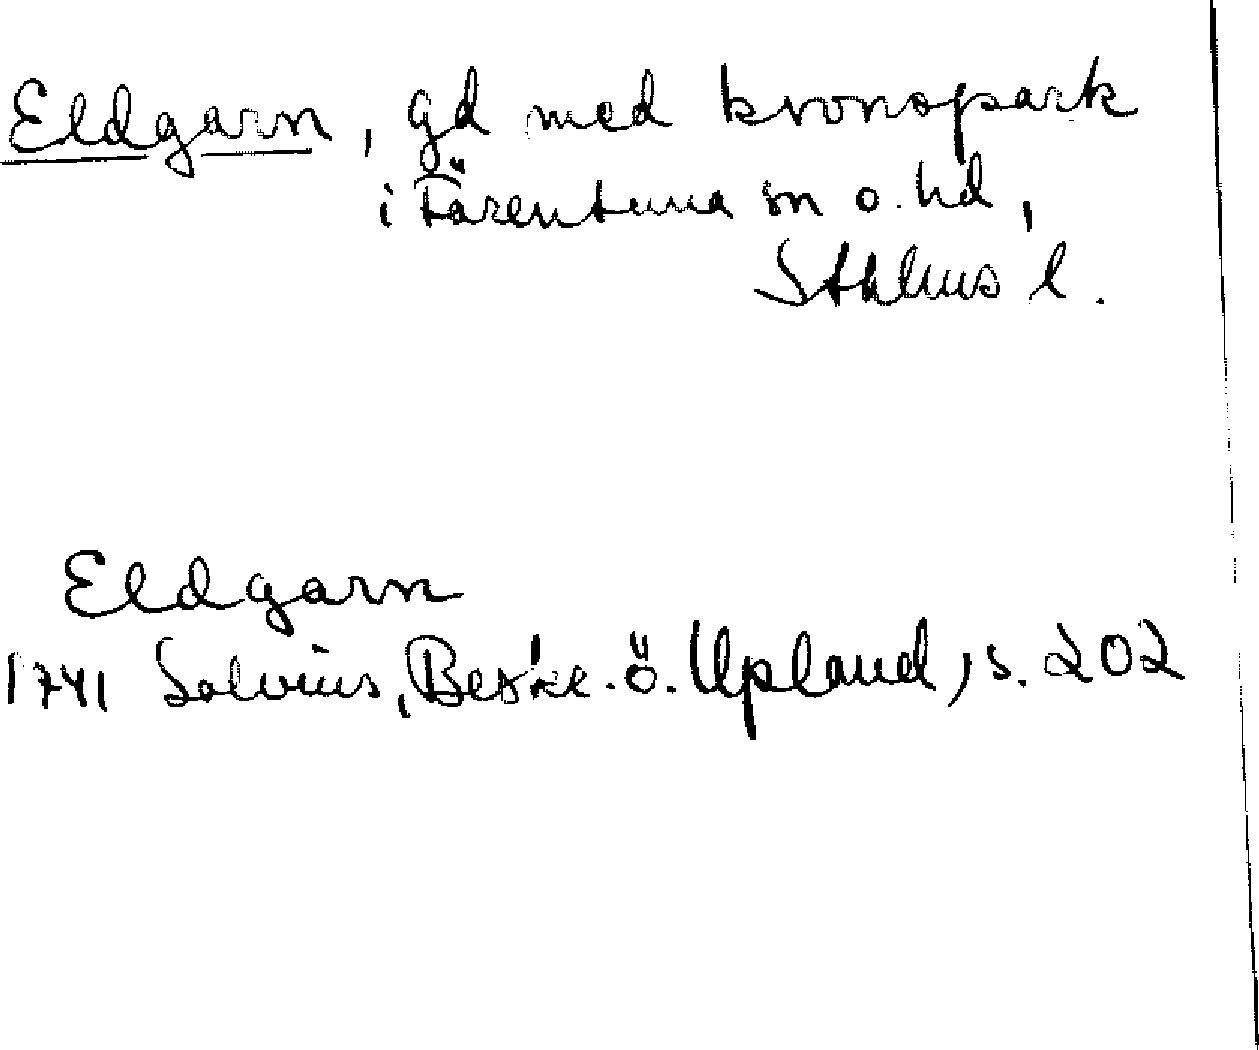 Eldgarn, gd med kronopark
i Färentuna sn o. hd,
Sthlms l.
Eldgarn
1741 Salvius, Beskr. ö. Upland, s. 202